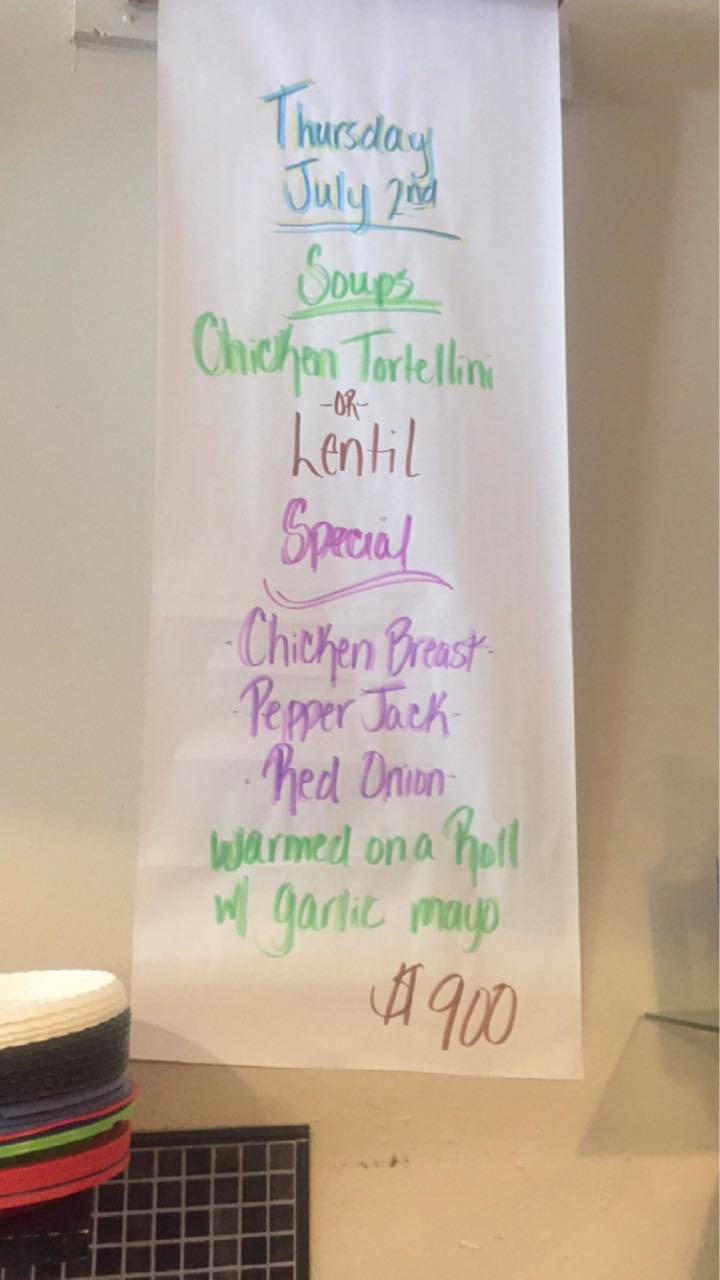 Thursday
July 2nd
Soups
Chicken Tortellini
-OR-
Lentil
Special
·Chicken Breast·
·Pepper Jack-
·Red Onion-
warmed on a Roll
w/ garlic mayo
$900